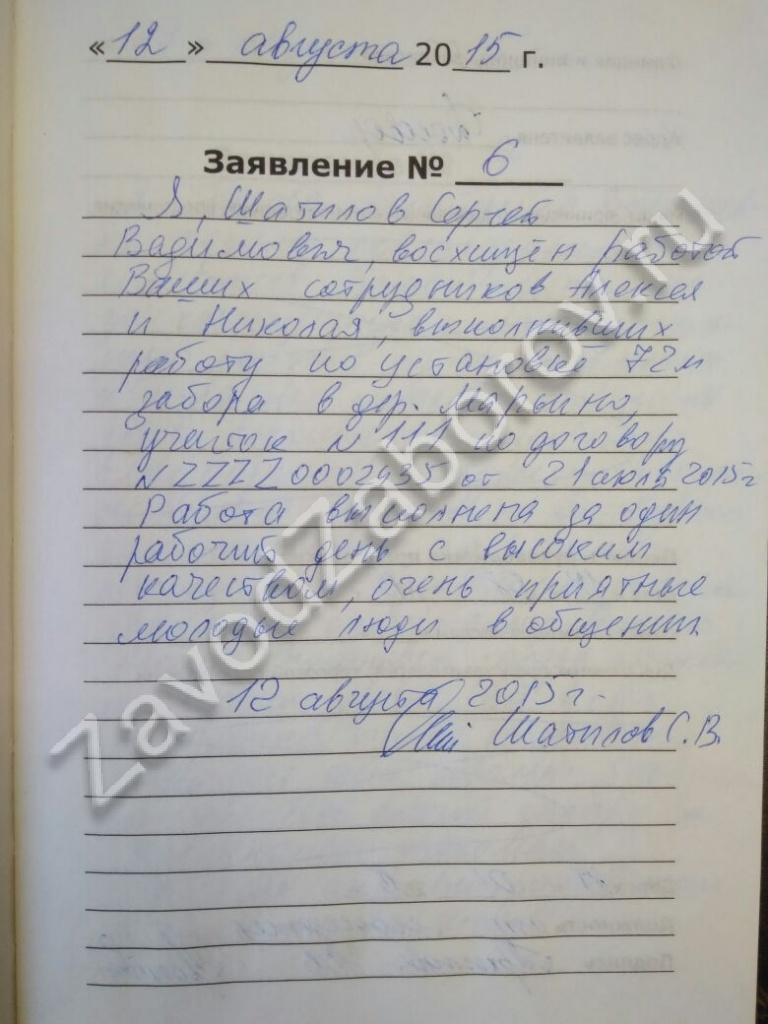 «12» августа 2015 г.
Заявление № 6
Я, Шатилов Сергей
Вадимович, восхищён работой
Ваших сотрудников Алексея
и Николая, выполнивших
работу по установке 72м
забора в дер. Марьино,
участок №111 по договору
№ZZZZ0002435 от 21 июля 2015г
Работа выполнена за один
рабочий день с высоким
качеством, очень приятные
молодые люди в общении.
12 августа 2015г.
Шатилов С.В.
ZavodZaborov.ru